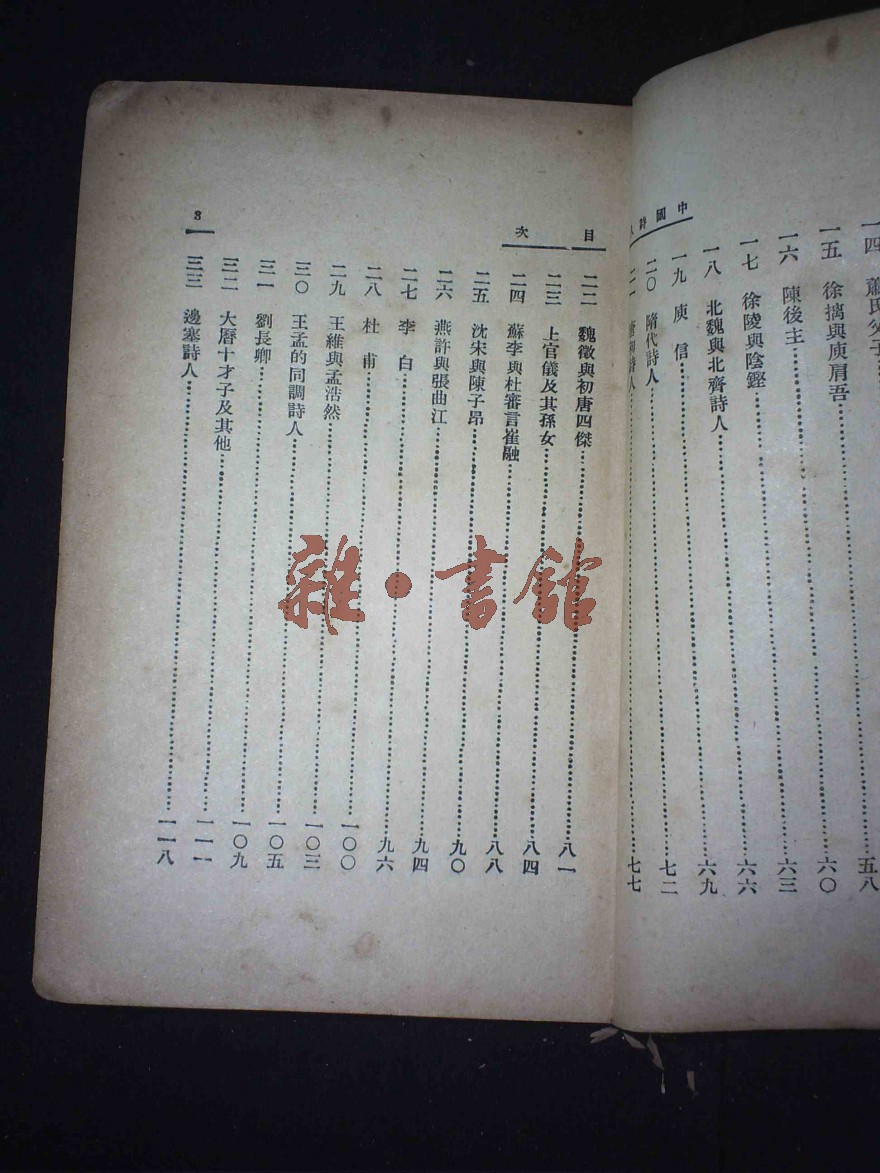 中國詩
一四 蕭氏父子……五八
一五 徐摛與庾肩吾……六〇
一六 陳後主……六三
一七 徐陵與陰鏗……六六
一八 北魏與北齊詩人……六九
一九 庾信……七二
二〇 隋代詩人……七七
二一 唐初詩人
目次
二二 魏徵與初唐四傑……八一
二三 上官儀及其孫女……八四
二四 蘇李與杜審言崔融……八八
二五 沈宋與陳子昂……九〇
二六 燕許與張曲江……九四
二七 李白……九六
二八 杜甫……一〇〇
二九 王維與孟浩然……一〇三
三〇 王孟的同調詩人……一〇五
三一 劉長卿……一〇九
三二 大曆十才子及其他……一一一
三三 邊塞詩人……一一八
3
雜·書館